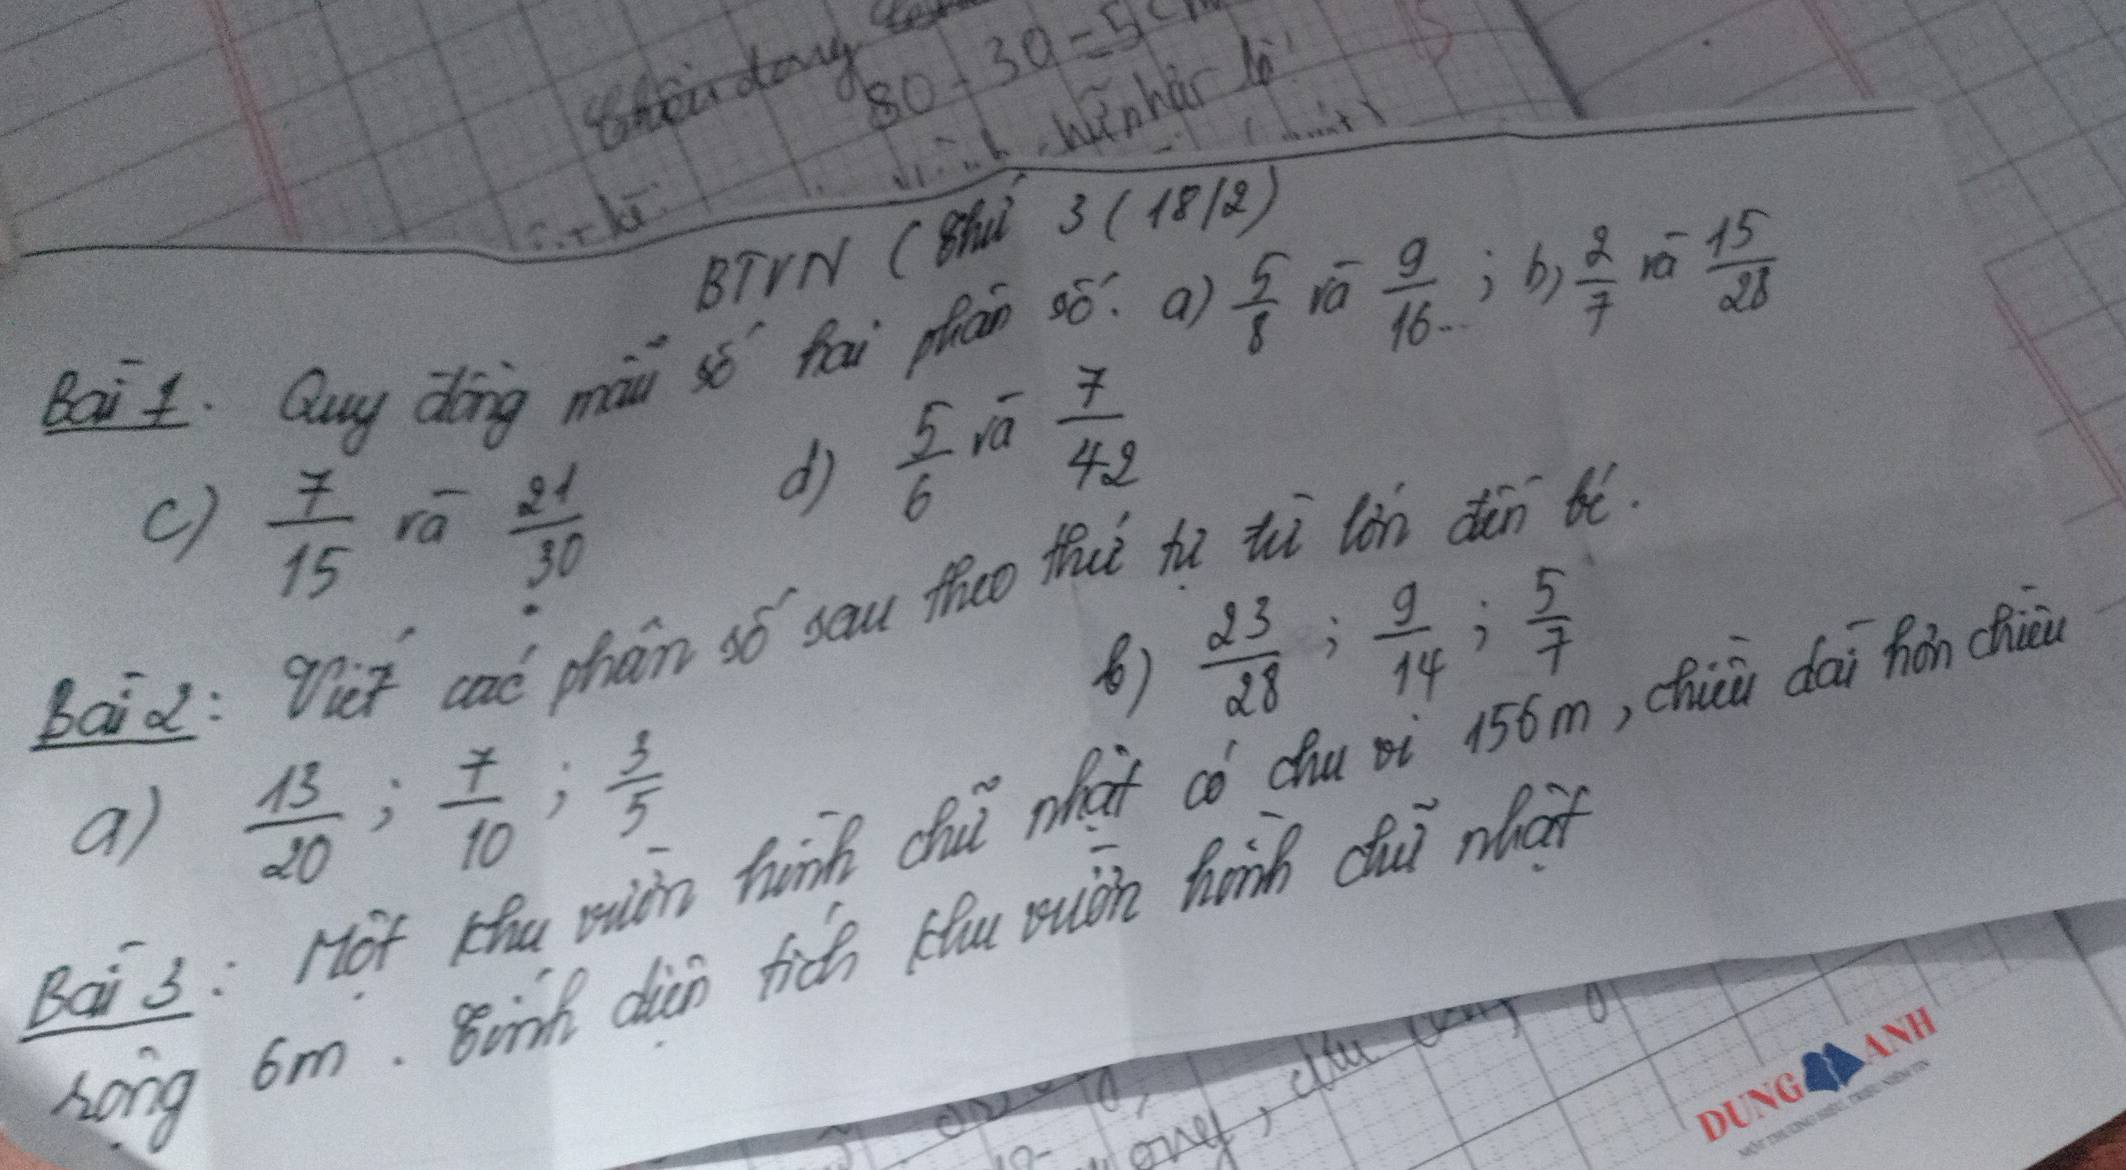 80 - 30 = 5
BTVN (Thứ 3 (18/2)
Bài 1. Quy đồng mẫu số hai phân số. a) 5/8 và 9/16 ; b) 2/7 và 15/28
c) 7/15 và 21/30 d) 5/6 và 7/42
Bài 2: Viết các phân số sau theo thứ tự từ lớn đến bé.
a) 13/20 ; 7/10 ; 3/5 b) 23/28 ; 9/14 ; 5/7
Bài 3: Một khu vườn hình chữ nhật có chu vi 156m, chiều dài hơn chiều
rộng 6m. Tính diện tích khu vườn hình chữ nhật
DUNG ANH